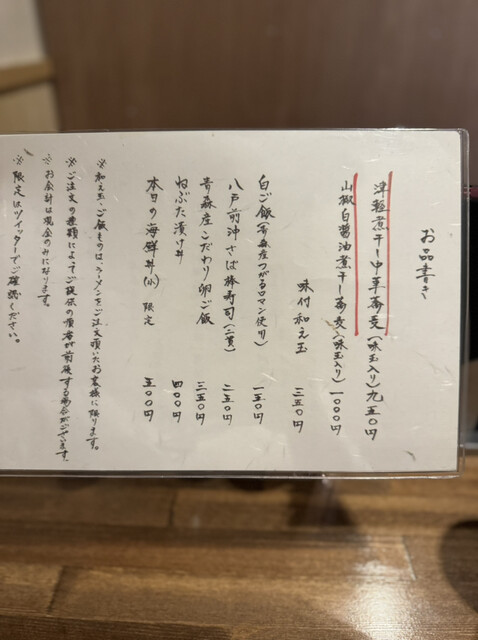 お品書き
津軽煮干し中華蕎麦(味玉入り)九五〇円
山椒白醤油煮干し蕎麦(味玉入り)一〇〇〇円
味付和え玉 三五〇円
白ご飯(青森産つがるロマン使用)一五〇円
八戸前沖さば棒寿司(二貫) 二五〇円
青森産こだわり卵ご飯 三五〇円
ねぶた漬け丼 四〇〇円
本日の海鮮丼(小) 限定 五〇〇円
※和え玉、ご飯ものはラーメンをご注文頂いたお客様に限ります。
※ご注文の種類によってご提供の順番が前後する場合がございます。
※お会計は現金のみになります。
※限定はツイッターでご確認ください。